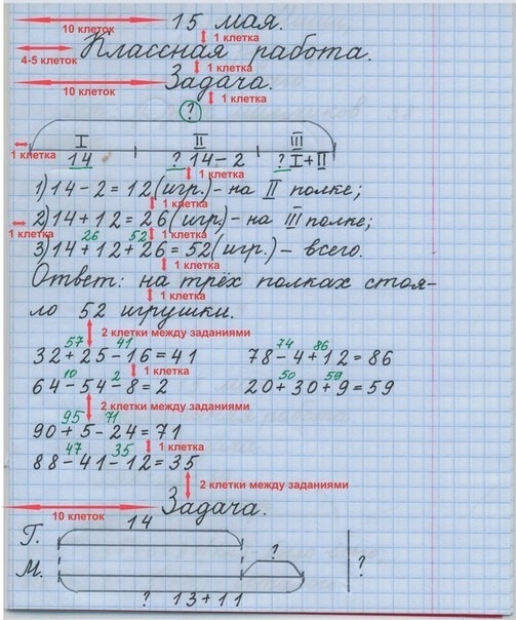 15 мая.
10 клеток
1 клетка
Классная работа.
4-5 клеток
1 клетка
Задача.
10 клеток
1 клетка
?
I II III
1 клетка
14 ? 14-2 ? I+II
1 клетка
1) 14-2=12(игр.)- на II полке;
1 клетка
2) 14+12=26(игр)- на III полке;
1 клетка 1 клетка
26 52
3) 14+12+26=52(игр)- всего.
1 клетка
Ответ: на трёх полках стоя-
1 клетка
ло 52 игрушки.
2 клетки между заданиями
57 41 74 86
32+25-16=41 78-4+12=86
1 клетка
10 2 50 59
64-54-8=2 20+30+9=59
2 клетки между заданиями
95 71
90+5-24=71
1 клетка
47 35
88-41-12=35
2 клетки между заданиями
Задача.
10 клеток
14
Г.
? ?
М.
? 13+11